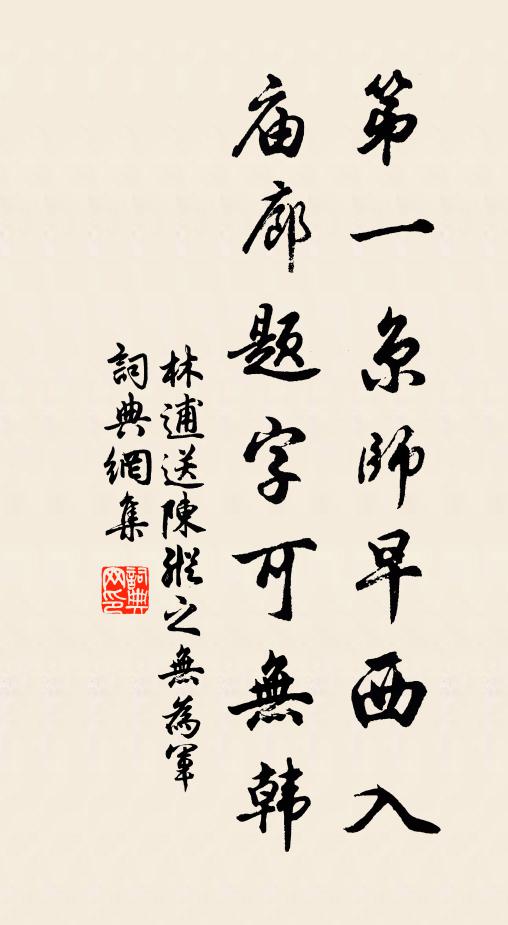 第一京師早西入
庙廊題字可無韩
林逋送陳縱之無為軍
詞典網集
詞典網印